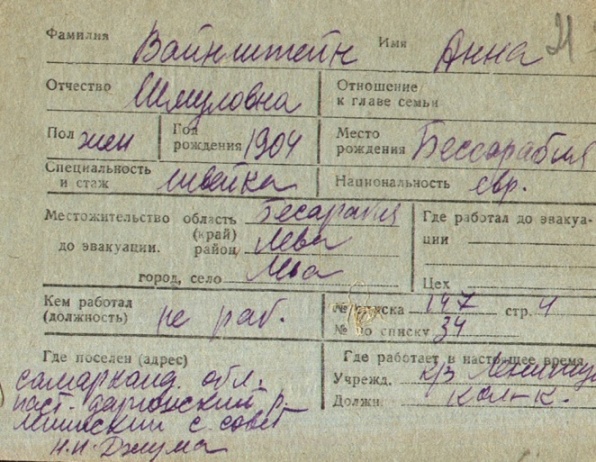 Фамилия Вайнштейн Имя Анна 21
Отчество Шмуловна Отношение к главе семьи
Пол жен Год рождения 1904 Место рождения Бессарабия
Специальность и стаж швейка Национальность евр.
Местожительство до эвакуации. область (край) Бесарабия Где работал до эвакуа-
район Лева ции
город, село Лева Цех
Кем работал (должность) не раб. № списка 147 стр. 4
№ по списку 34
Где поселен (адрес) Где работает в настоящее время
самарканд. обл. Учрежд. к/з
паст. даргомский р. Должн. кол-к.
с. совет
п.п. Джума